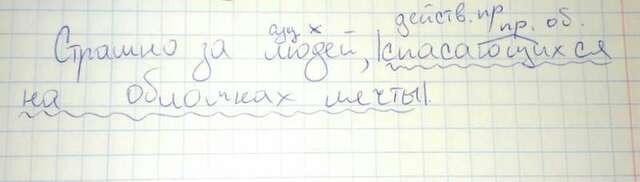 действ. пр.
сущ. х пр. об.
Страшно за людей, |спасающихся
на обломках мечты|.